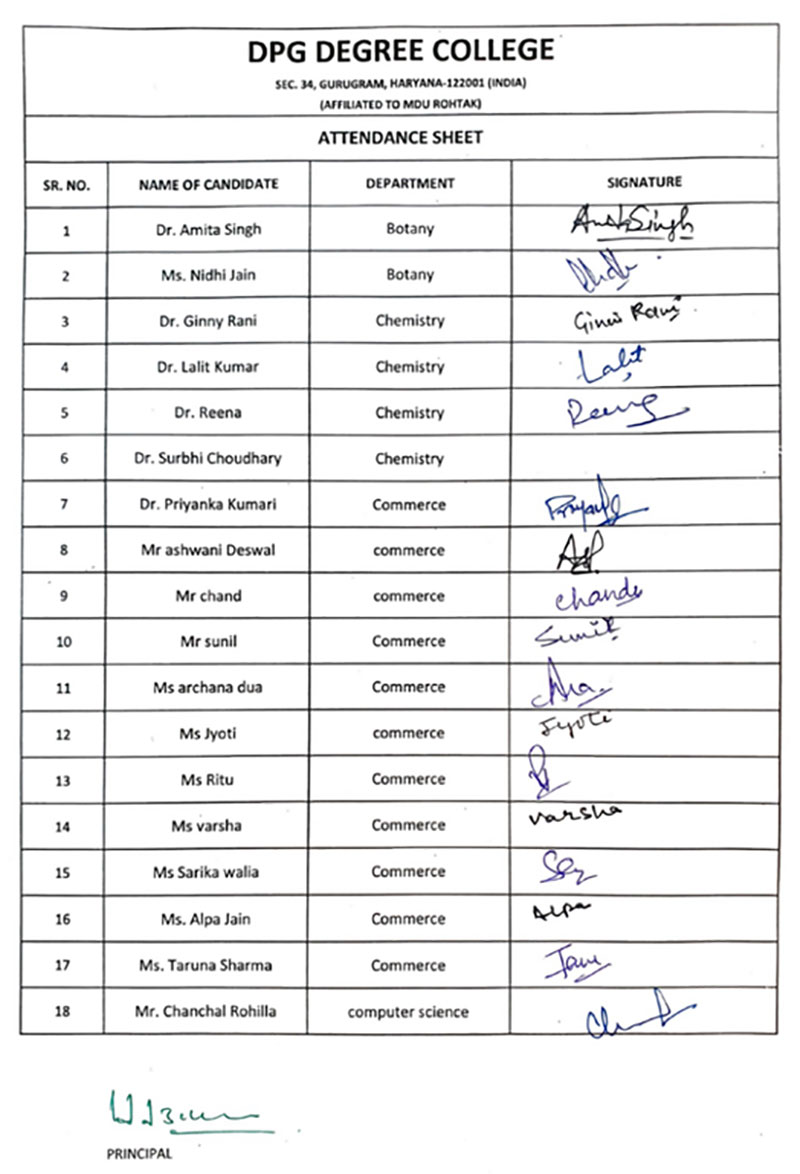 DPG DEGREE COLLEGE
SEC. 34, GURUGRAM, HARYANA-122001 (INDIA)
(AFFILIATED TO MDU ROHTAK)
ATTENDANCE SHEET
SR. NO. NAME OF CANDIDATE DEPARTMENT SIGNATURE
1 Dr. Amita Singh Botany
2 Ms. Nidhi Jain Botany
3 Dr. Ginny Rani Chemistry
4 Dr. Lalit Kumar Chemistry Lalit
5 Dr. Reena Chemistry
6 Dr. Surbhi Choudhary Chemistry
7 Dr. Priyanka Kumari Commerce
8 Mr ashwani Deswal commerce
9 Mr chand commerce
10 Mr sunil Commerce Sunil
11 Ms archana dua Commerce
12 Ms Jyoti commerce Jyoti
13 Ms Ritu Commerce
14 Ms varsha Commerce varsha
15 Ms Sarika walia Commerce
16 Ms. Alpa Jain Commerce Alpa
17 Ms. Taruna Sharma Commerce
18 Mr. Chanchal Rohilla computer science
PRINCIPAL